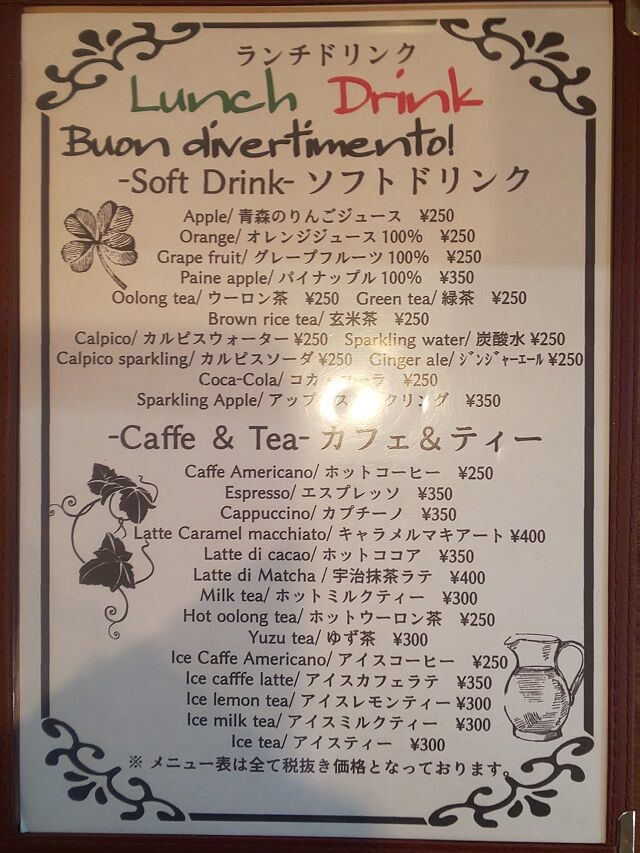 ランチドリンク
Lunch Drink
Buon divertimento!
-Soft Drink- ソフトドリンク
Apple/ 青森のりんごジュース ¥250
Orange/ オレンジジュース 100% ¥250
Grape fruit/ グレープフルーツ 100% ¥250
Paine apple/ パイナップル 100% ¥350
Oolong tea/ ウーロン茶 ¥250 Green tea/ 緑茶 ¥250
Brown rice tea/ 玄米茶 ¥250
Calpico/ カルピスウォーター ¥250 Sparkling water/ 炭酸水 ¥250
Calpico sparkling/ カルピスソーダ ¥250 Ginger ale/ ｼﾞﾝｼﾞｬｰｴｰﾙ ¥250
Coca-Cola/ ¥250
Sparkling Apple/ ¥350
-Caffe & Tea- カフェ＆ティー
Caffe Americano/ ホットコーヒー ¥250
Espresso/ エスプレッソ ¥350
Cappuccino/ カプチーノ ¥350
Latte Caramel macchiato/ キャラメルマキアート ¥400
Latte di cacao/ ホットココア ¥350
Latte di Matcha / 宇治抹茶ラテ ¥400
Milk tea/ ホットミルクティー ¥300
Hot oolong tea/ ホットウーロン茶 ¥250
Yuzu tea/ ゆず茶 ¥300
Ice Caffe Americano/ アイスコーヒー ¥250
Ice cafffe latte/ アイスカフェラテ ¥350
Ice lemon tea/ アイスレモンティー ¥300
Ice milk tea/ アイスミルクティー ¥300
Ice tea/ アイスティー ¥300
※ メニュー表は全て税抜き価格となっております。